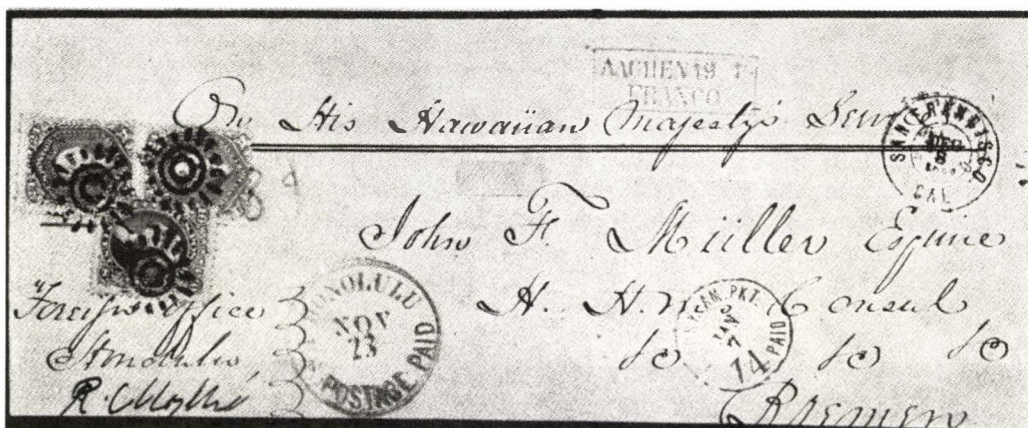 AACHEN 19 1
FRANCO
On His Hawaiian Majesty's Serv
SAN FRANCISCO
DEC
CAL.
John F. Müller Esquire
H. H. M. Consul
Bremen
"Foreign Office
Honolulu,
R. C. Wyllie
HONOLULU
NOV
23
U.S. POSTAGE PAID
AM. PKT.
JAN
7
14
PAID